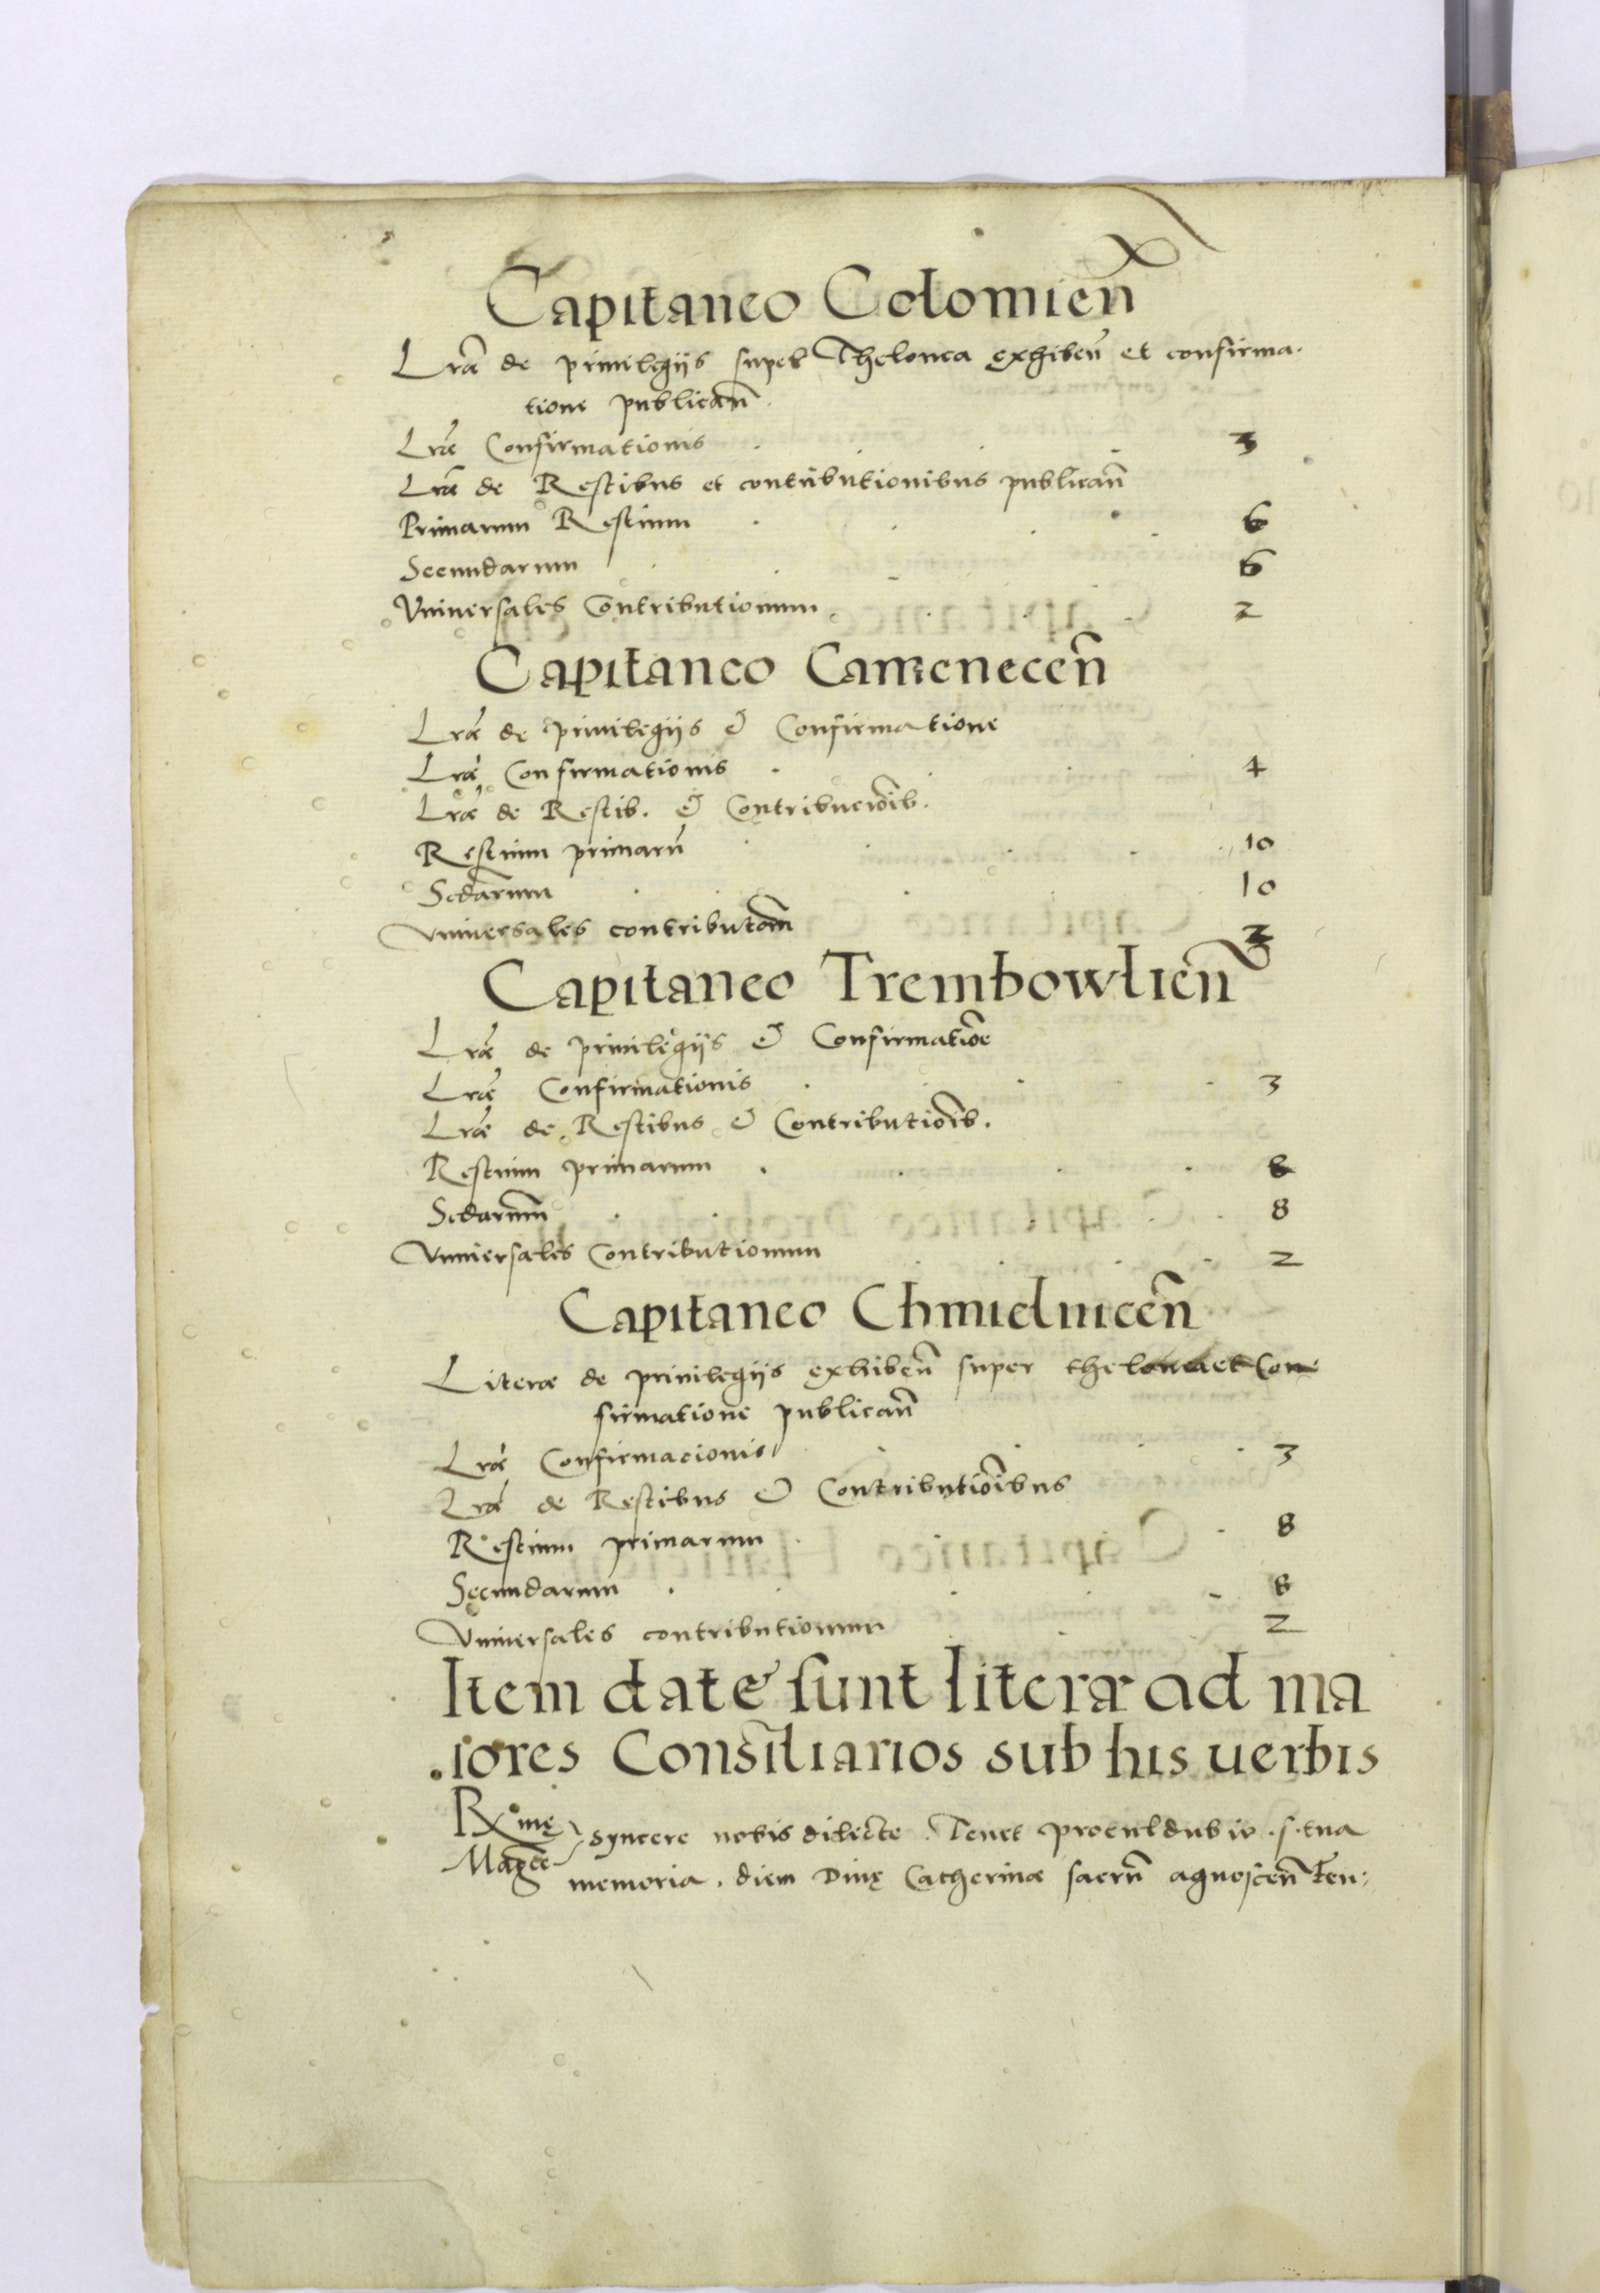 Capitaneo Colomien̄
Lrã de priuilegijs super Thelonea exhiben̄ et confirma-
tione publican̄.
Lrẽ Confirmationis . . . 3
Lrã de Restibus et contributionibus publican̄
Primarum Restium . . . . 6
Secundarum . . . . 6
Vniuersales Contributionum . . . 2
Capitaneo Camenecen̄
Lræ de priuilegijs & Confirmatione
Lræ Confirmationis . . . 4
Lræ de Restib. & Contribucioĩb.
Restium primarũ . . . . 10
Scd̃arum . . . . 10
Vniuersales contributoũm 2
Capitaneo Trembowlien̄
Lræ de priuilegijs & Confirmatioẽ
Lræ Confirmationis . . . . 3
Lræ de Restibus & Contributioĩb.
Restium primarum . . . . 8
Scd̃arum . . . . 8
Vniuersales Contributionum . . . 2
Capitaneo Chmielnicen̄
Literæ de priuilegijs exhiben̄ super thelonea et Con
firmatione publican̄
Lræ Confirmacionis . . . . 3
Lræ de Restibus & Contributioĩbus
Restium primarum . . . 8
Secundarum . . . . 8
Vniuersales contributionum 2
Item datę sunt literæ ad ma
iores Consiliarios sub his uerbis
Rx̃mę syncere nobis dilecte. Tenet proculdubio .s. tua
Mag̃ce memoria. diem Diuę Catherinæ sacrũ agnoscen̄ Ten: